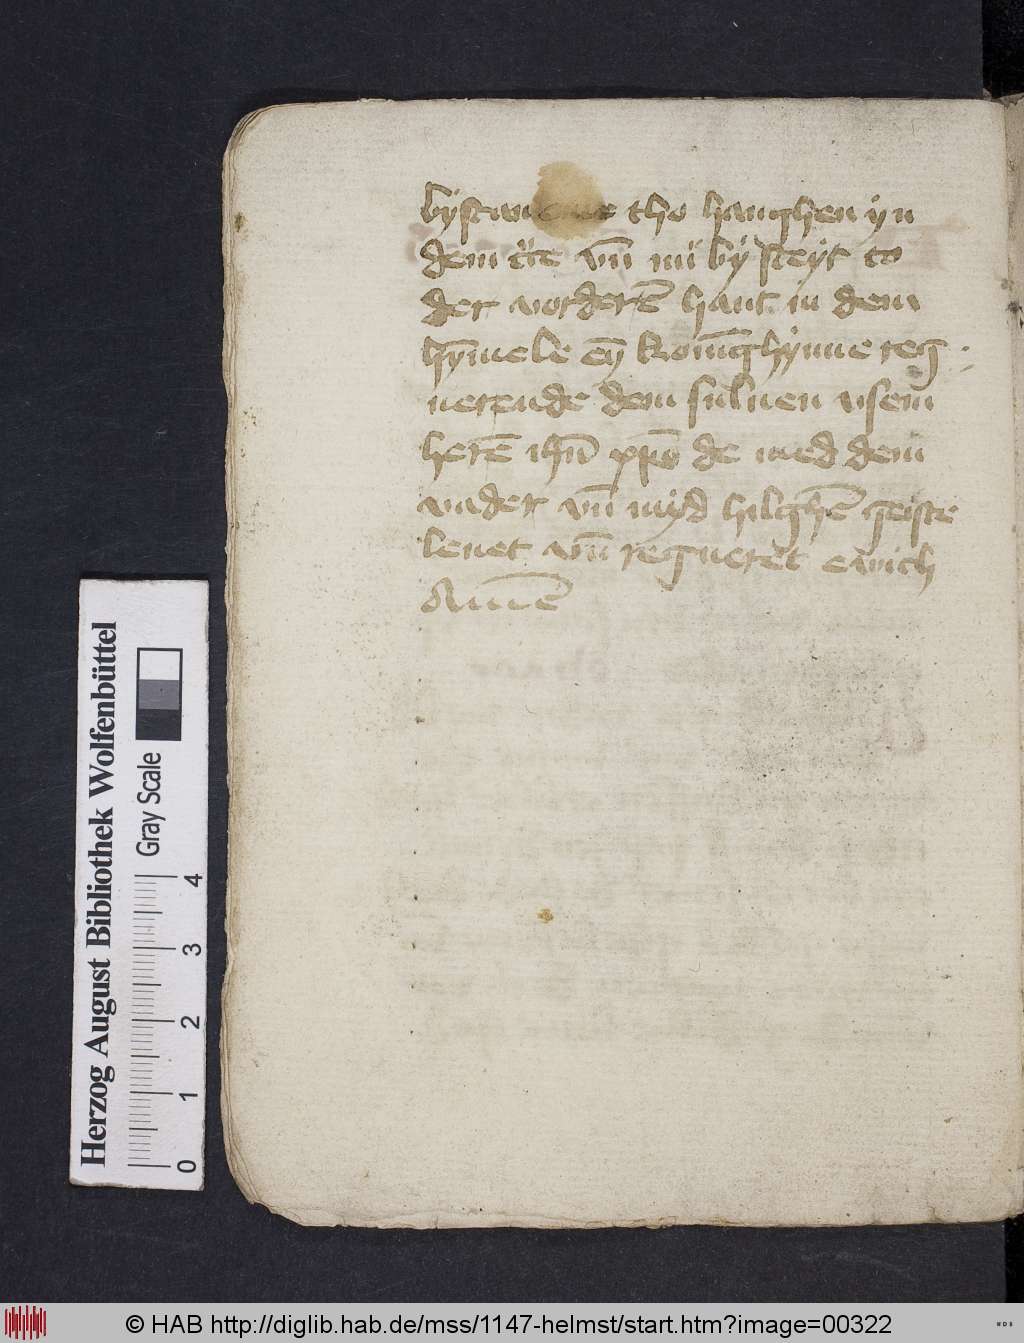 tho hanghen yn
dem c͛tce vn̄ nu bÿ steÿt to
der vorderē hant in dem
hȳmele eȳ konīghÿnne reg
nerende dem suluen vsem
herē ihū xp̄o de med dem
vader vn̄ mÿd hilghē geiste
leuet vn̄ regneret ewich
Amē
Herzog August Bibliothek Wolfenbüttel
Gray Scale
0 1 2 3 4
© HAB http://diglib.hab.de/mss/1147-helmst/start.htm?image=00322